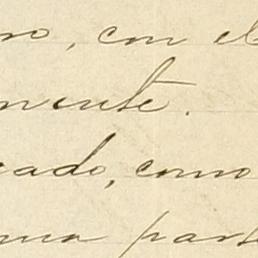 no, con el
mente.
cado, como
una parte